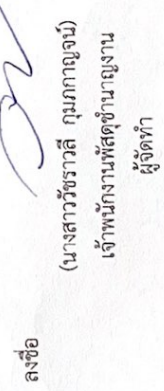 ลงชื่อ
(นางสาววัชราวลี กุมภกาญจน์)
เจ้าพนักงานพัสดุชำนาญงาน
ผู้จัดทำ